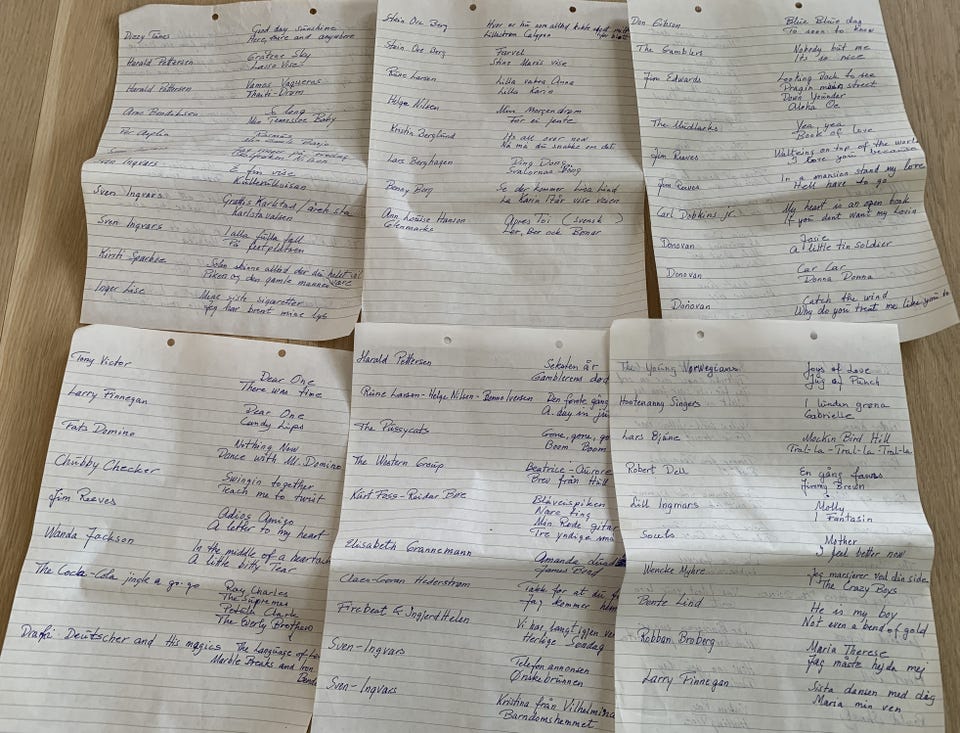 Dizzy Tunes Good day sunshine
Here, there and anywhere
Harald Pettersen Gråtene Sky
Lasso Vise
Harald Pettersen Vamos Vaqueros
Thaiti-Drøm
Arne Bendiksen So long
Min Tenessee Baby
Rasmus
Sven Ingvars E fin vise
Kullerullvisan
Sven Ingvars Grattis Karlstad / åreh sta
Karlstavalsen
Sven Ingvars I alla fulla fall
På festplatsen
Kirsti Sparboe Solen skinne alltid der du helst vil
være
Piken og den gamle mannen
Inger Lise Mine siste sigaretter
Jeg har brent mine lys
Stein Ove Berg Hvor er hu som alltid
Lillestrøm Calypso
Stein Ove Berg Farvel
Stine Maris vise
Rune Larsen Lilla vakra Anna
Lilla Karin
Helge Nilsen Min Morgendrøm
For ei jente
Kirstin Berglund Its all over now
Nå må du snakke om det
Lars Berghagen Ding Dong
Svalornas Sång
Benny Borg Se der kommer Lisa Lind
La Karin i får vise veien
Ann Louise Hanson Apres toi (svensk)
Cotenmarks Ler, Ber och Boner
Don Gibson Blue Blue day
To soon to know
The Gamblers Nobody but me
Its so nice
Jim Edwards Looking back to see
Dragin main street
Down Younder
Aloha Oe
The Mudlarks Yea, yea
Book of love
Jim Reeves Waltzing on top of the world
I love you because
Jim Reeves In a mansion stand my love
Hell have to go
Carl Dobkins jr. My heart is an open book
If you dont want my Lovin
Donovan Josie
A little tin soldier
Donovan Car Car
Donna Donna
Donovan Catch the wind
Why do you treat me like you do
Tony Victor Dear One
There was time
Larry Finnegan Dear One
Candy Lips
Fats Domino Nothing New
Dance with Mr. Domino
Chubby Checker Swingin together
Teach me to twist
Jim Reeves Adios Amigo
A letter to my heart
Wanda Jackson In the middle of a heartach
A little bitty Tear
The Cocka-Cola jingle a go-go Ray Charles
The Supremes
Petula Clark
The Everly Brothers
Drafi Deutscher and His magics The Language of Lo
Marble Breaks and Iron
Bends
Harald Pettersen Seksten år
Gamblerens død
Rune Larsen-Helge Nilsen-Benno Iversen Den første gång
A day in ju
The Pussycats Gone, gone, go
Boom Boom
The Western Group Beatrice-Aurore
Brev från Håll
Kurt Foss-Reidar Bøe Blåveispiken
Nare Fina
Min Røde gitar
Tre yndige små
Elisabeth Grannemann Amanda
James Bond
Claes-Goran Hederstrøm Takk for at du
Jag kommer hem
Firebeat & Ingjerd Helen Vi har langt igjen
Herlige Søndag
Sven-Ingvars Telefonannonsen
Ønskebrunnen
Sven-Ingvars Kristina från Vilhelmina
Barndomshemmet
The Young Norwegians Joys of Love
Jug of Punch
Hootenanny Singers I lunden grøna
Gabrielle
Lars Bjune Mockin Bird Hill
Tral-la-Tral-la-Tral-la
Robert Dell En gång fanns
Jimmy Brown
Lill Ingmars Molly
I Fantasin
Souls Mother
I feel better now
Wencke Myhre Jeg marsjerer ved din side
The Crazy Boys
Bente Lind He is my boy
Not even a bend of gold
Robban Broberg Maria Therese
Jag måste hejda mej
Larry Finnegan Sista dansen med dig
Maria min ven